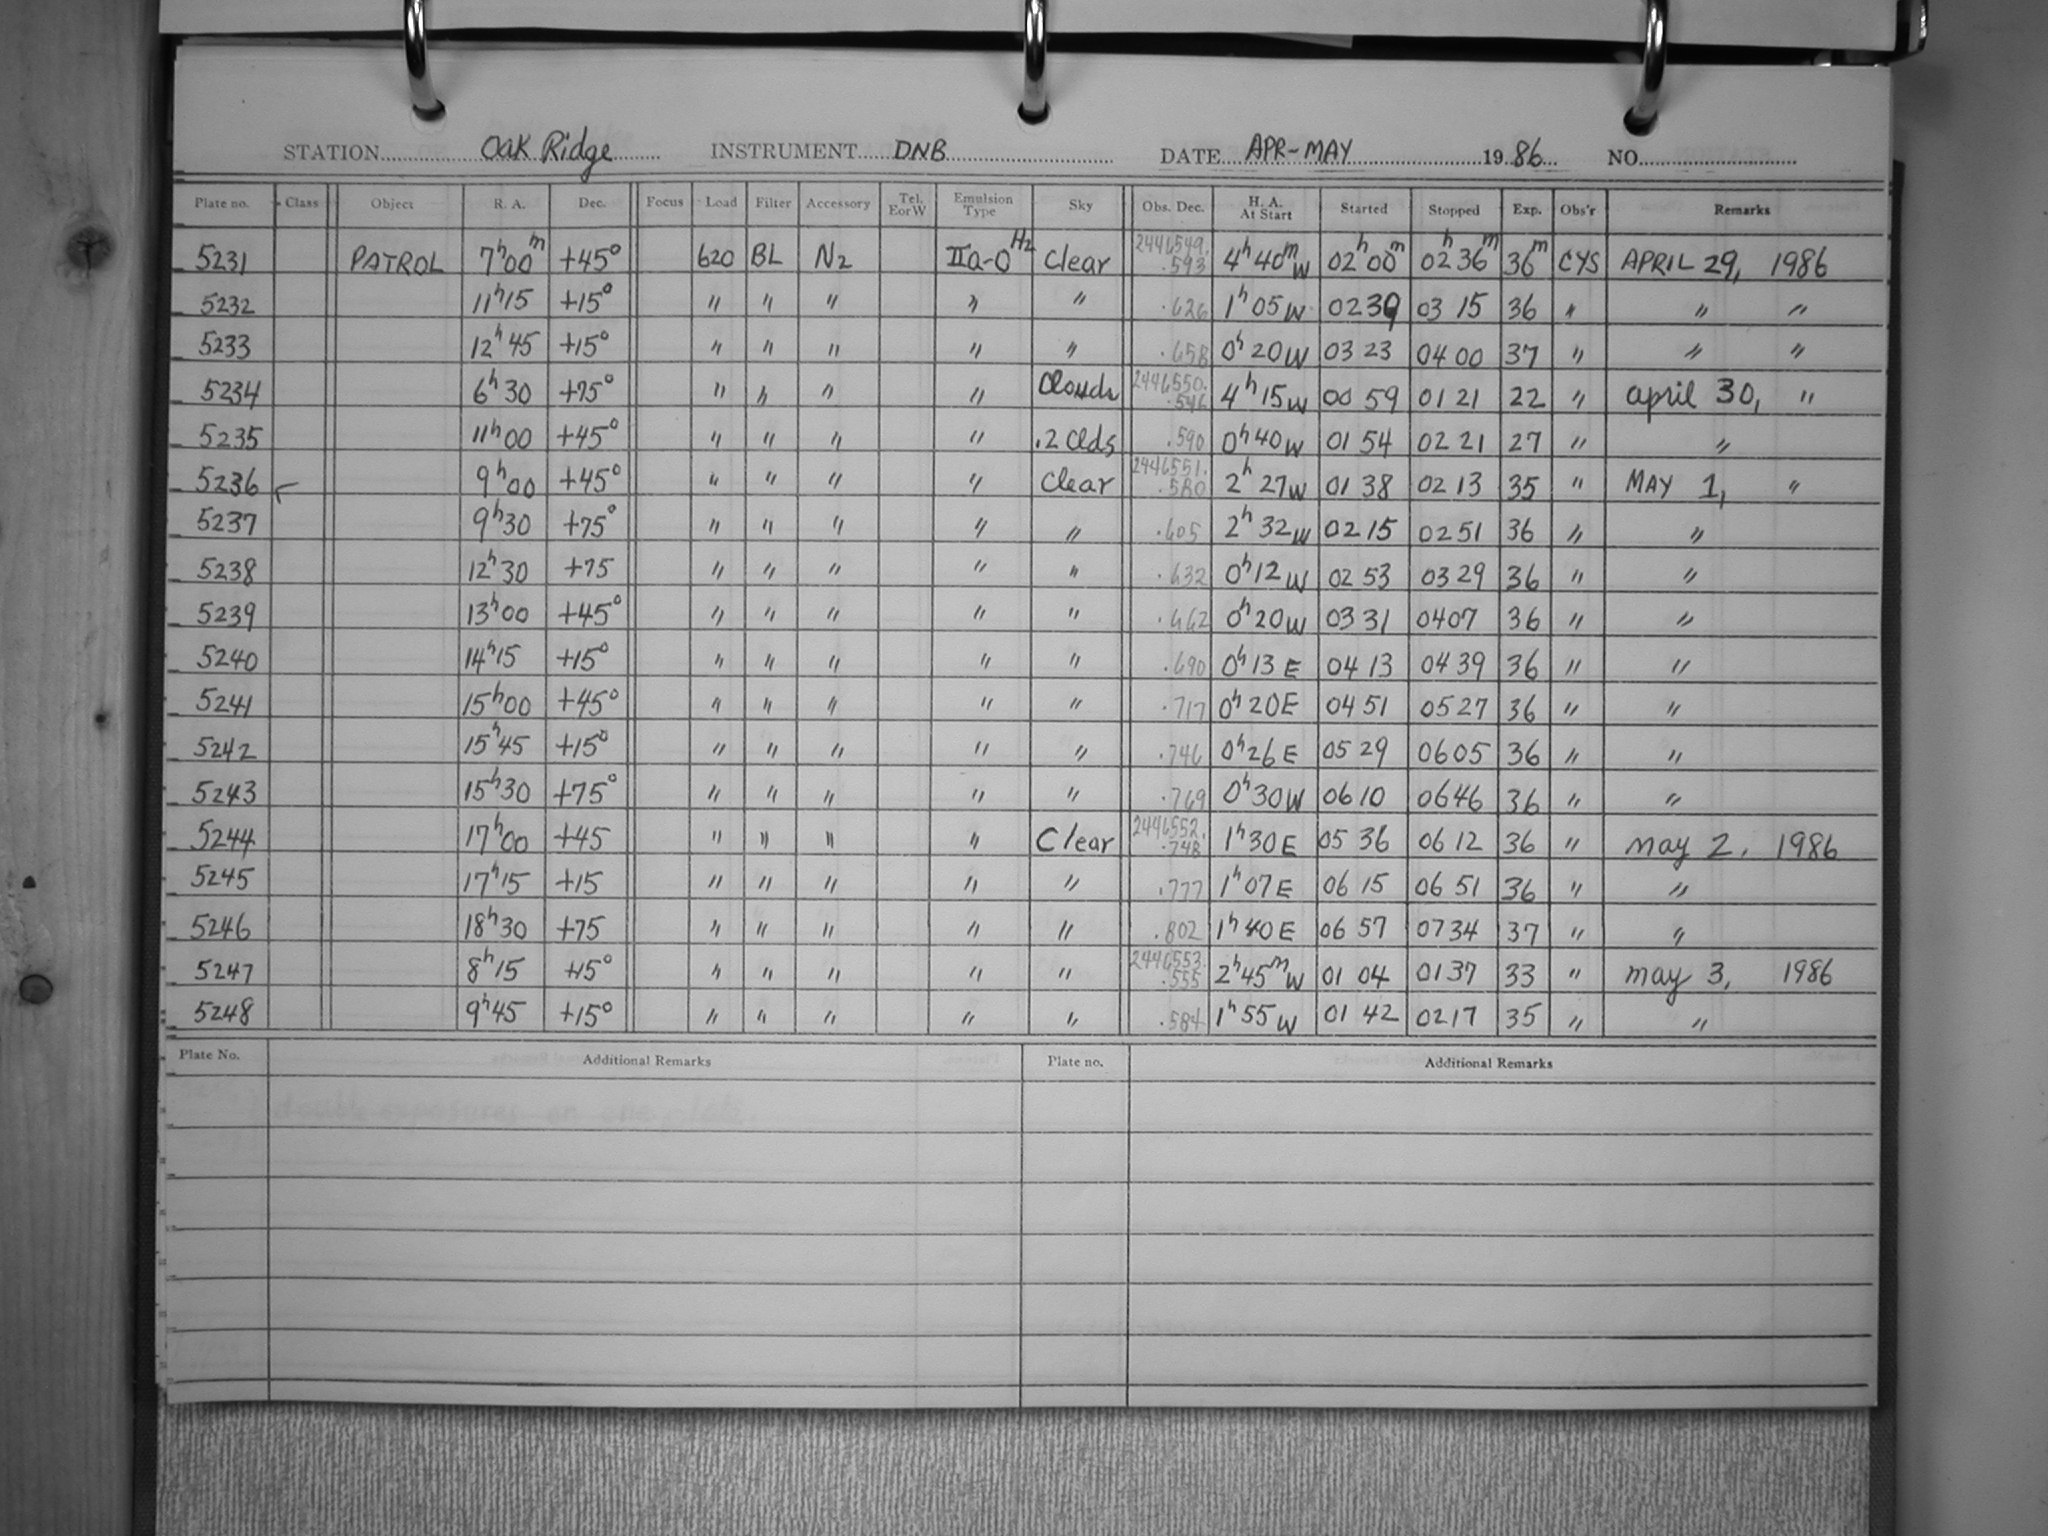 STATION Oak Ridge INSTRUMENT DNB DATE APR-MAY 1986 NO.
Plate no. Class Object R. A. Dec. Focus Load Filter Accessory Tel. E or W Emulsion Type Sky Obs. Dec. H. A. At Start Started Stopped Exp. Obs'r Remarks
5231 PATROL 7h00m +45° 620 BL N2 IIa-O H2 Clear 2446549. .593 4h 40m W 02h00m 02h36m 36m CYS APRIL 29, 1986
5232 11h15 +15° " " " " " .626 1h 05 W 02 39 03 15 36 " " "
5233 12h45 +15° " " " " " .658 0h 20 W 03 23 04 00 37 " " "
5234 6h30 +75° " " " " Clouds 2446550. .546 4h 15 W 00 59 01 21 22 " april 30, "
5235 11h00 +45° " " " " .2 Clds .590 0h 40 W 01 54 02 21 27 " "
5236 9h00 +45° " " " " Clear 2446551. .580 2h 27 W 01 38 02 13 35 " MAY 1, "
5237 9h30 +75° " " " " " .605 2h 32 W 02 15 02 51 36 " "
5238 12h30 +75 " " " " " .632 0h 12 W 02 53 03 29 36 " "
5239 13h00 +45° " " " " " .662 0h 20 W 03 31 04 07 36 " "
5240 14h15 +15° " " " " " .690 0h 13 E 04 13 04 39 36 " "
5241 15h00 +45° " " " " " .717 0h 20 E 04 51 05 27 36 " "
5242 15h45 +15° " " " " " .746 0h 26 E 05 29 06 05 36 " "
5243 15h30 +75° " " " " " .769 0h 30 W 06 10 06 46 36 " "
5244 17h00 +45 " " " " Clear 2446552. .748 1h 30 E 05 36 06 12 36 " may 2, 1986
5245 17h15 +15 " " " " " .777 1h 07 E 06 15 06 51 36 " "
5246 18h30 +75 " " " " " .802 1h 40 E 06 57 07 34 37 " "
5247 8h15 +15° " " " " " 2446553. .555 2h 45m W 01 04 01 37 33 " may 3, 1986
5248 9h45 +15° " " " " " .584 1h 55 W 01 42 02 17 35 " "
Plate No. Additional Remarks Plate no. Additional Remarks